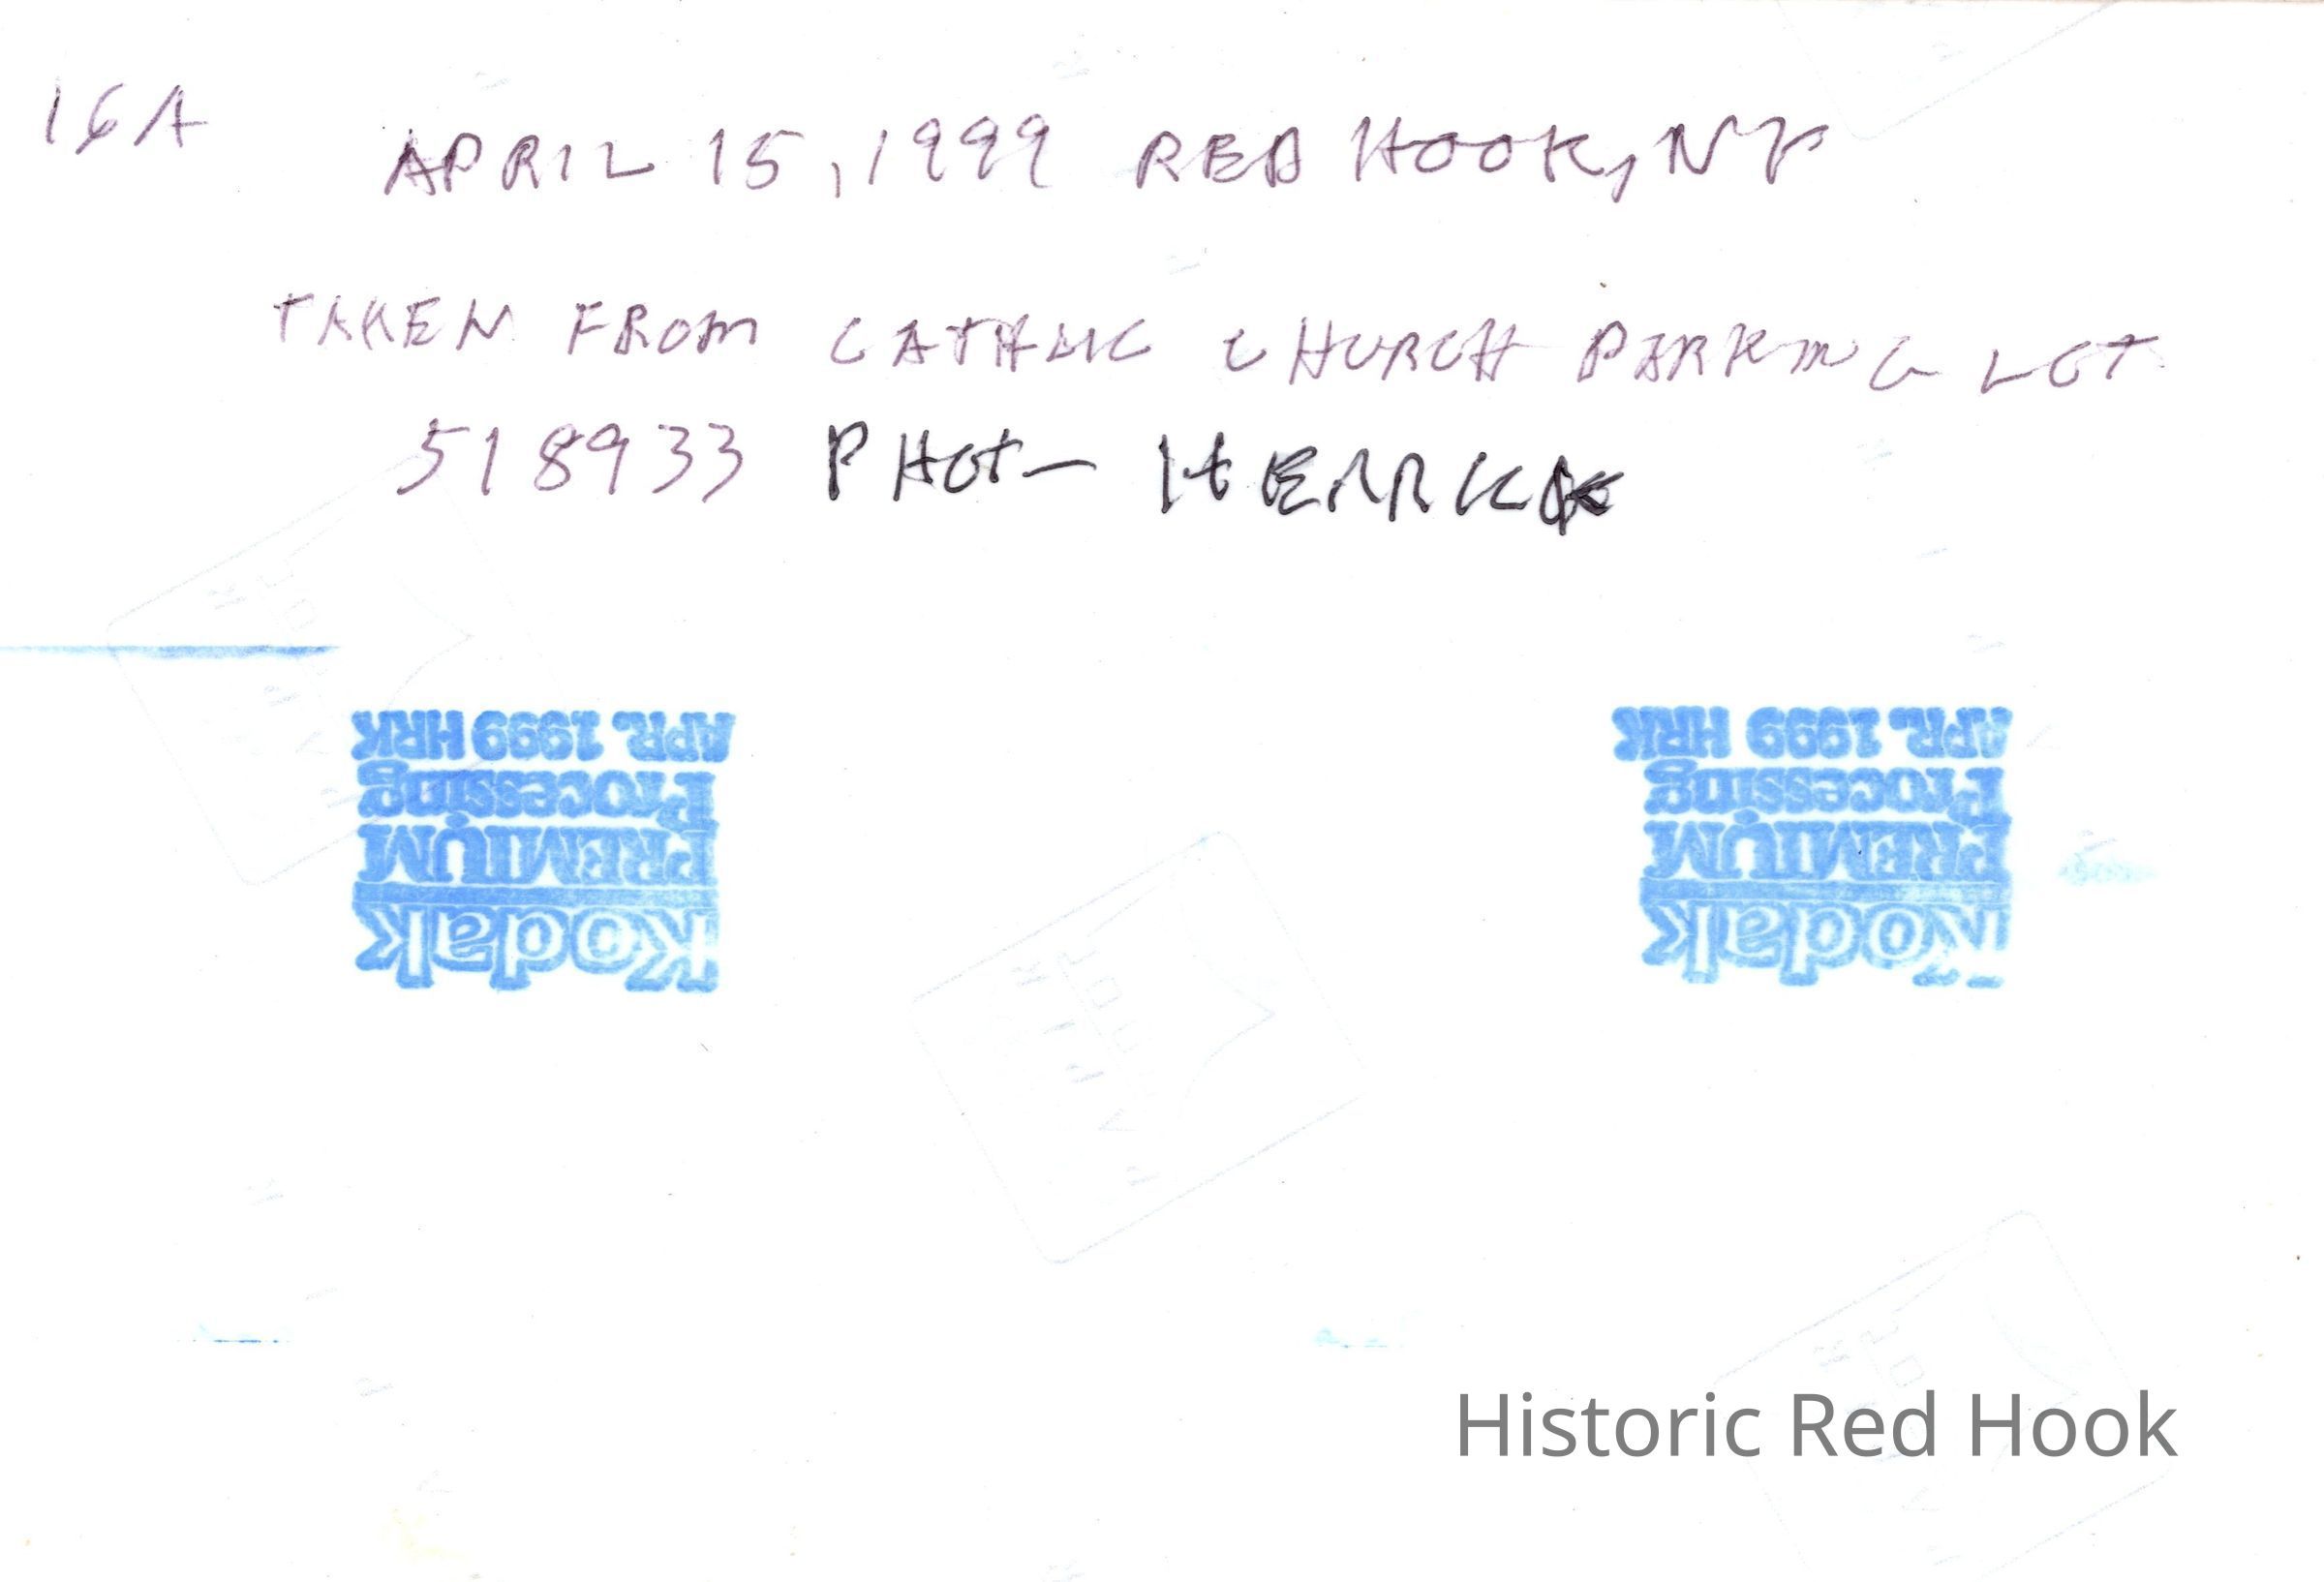 16A
APRIL 15, 1999 RED HOOK, NY
TAKEN FROM CATHLIC CHURCH PARKING LOT
518933 PHOT- HERRICK
APR. 1999 HRK
Processing
PREMIUM
Kodak
APR. 1999 HRK
Processing
PREMIUM
Kodak
Historic Red Hook